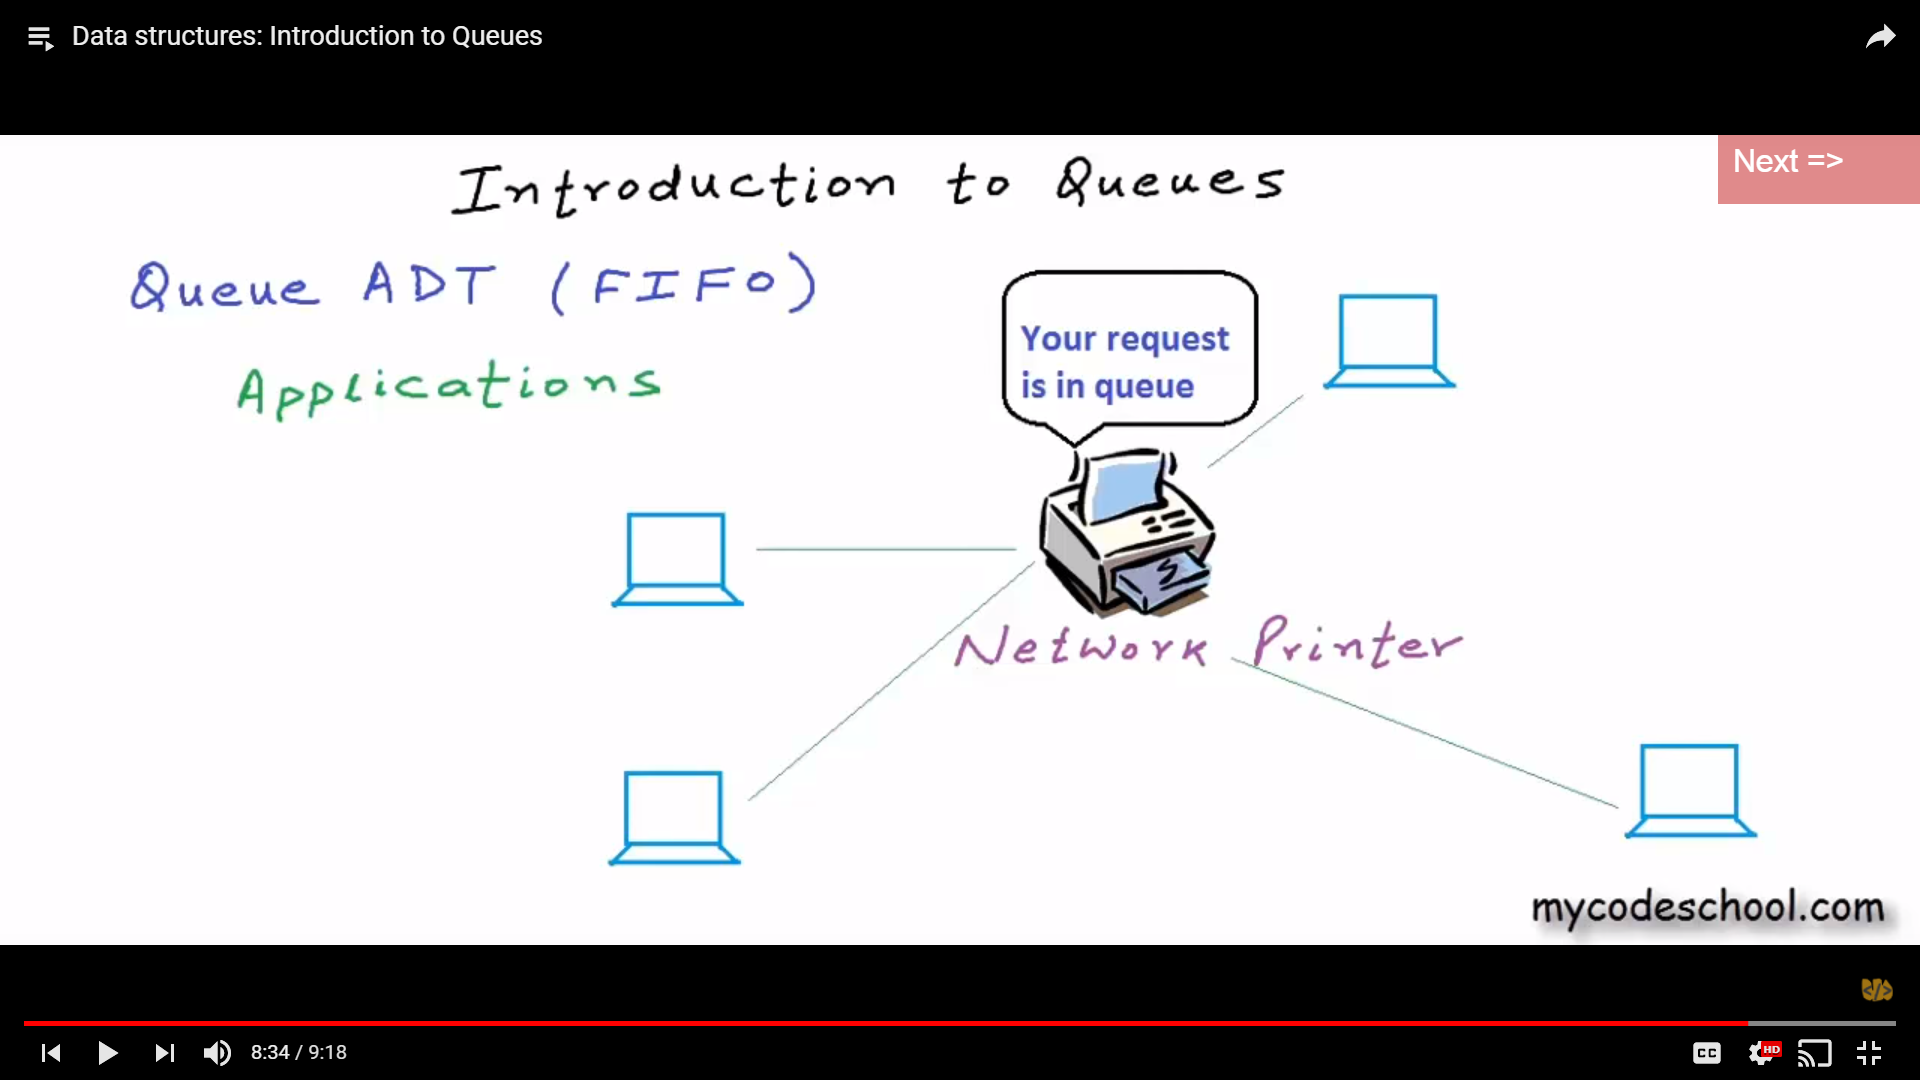 Data structures: Introduction to Queues
Next =>
Introduction to Queues
Queue ADT (FIFO)
Applications
Your request
is in queue
Network Printer
mycodeschool.com
</>
8:34 / 9:18
CC
HD